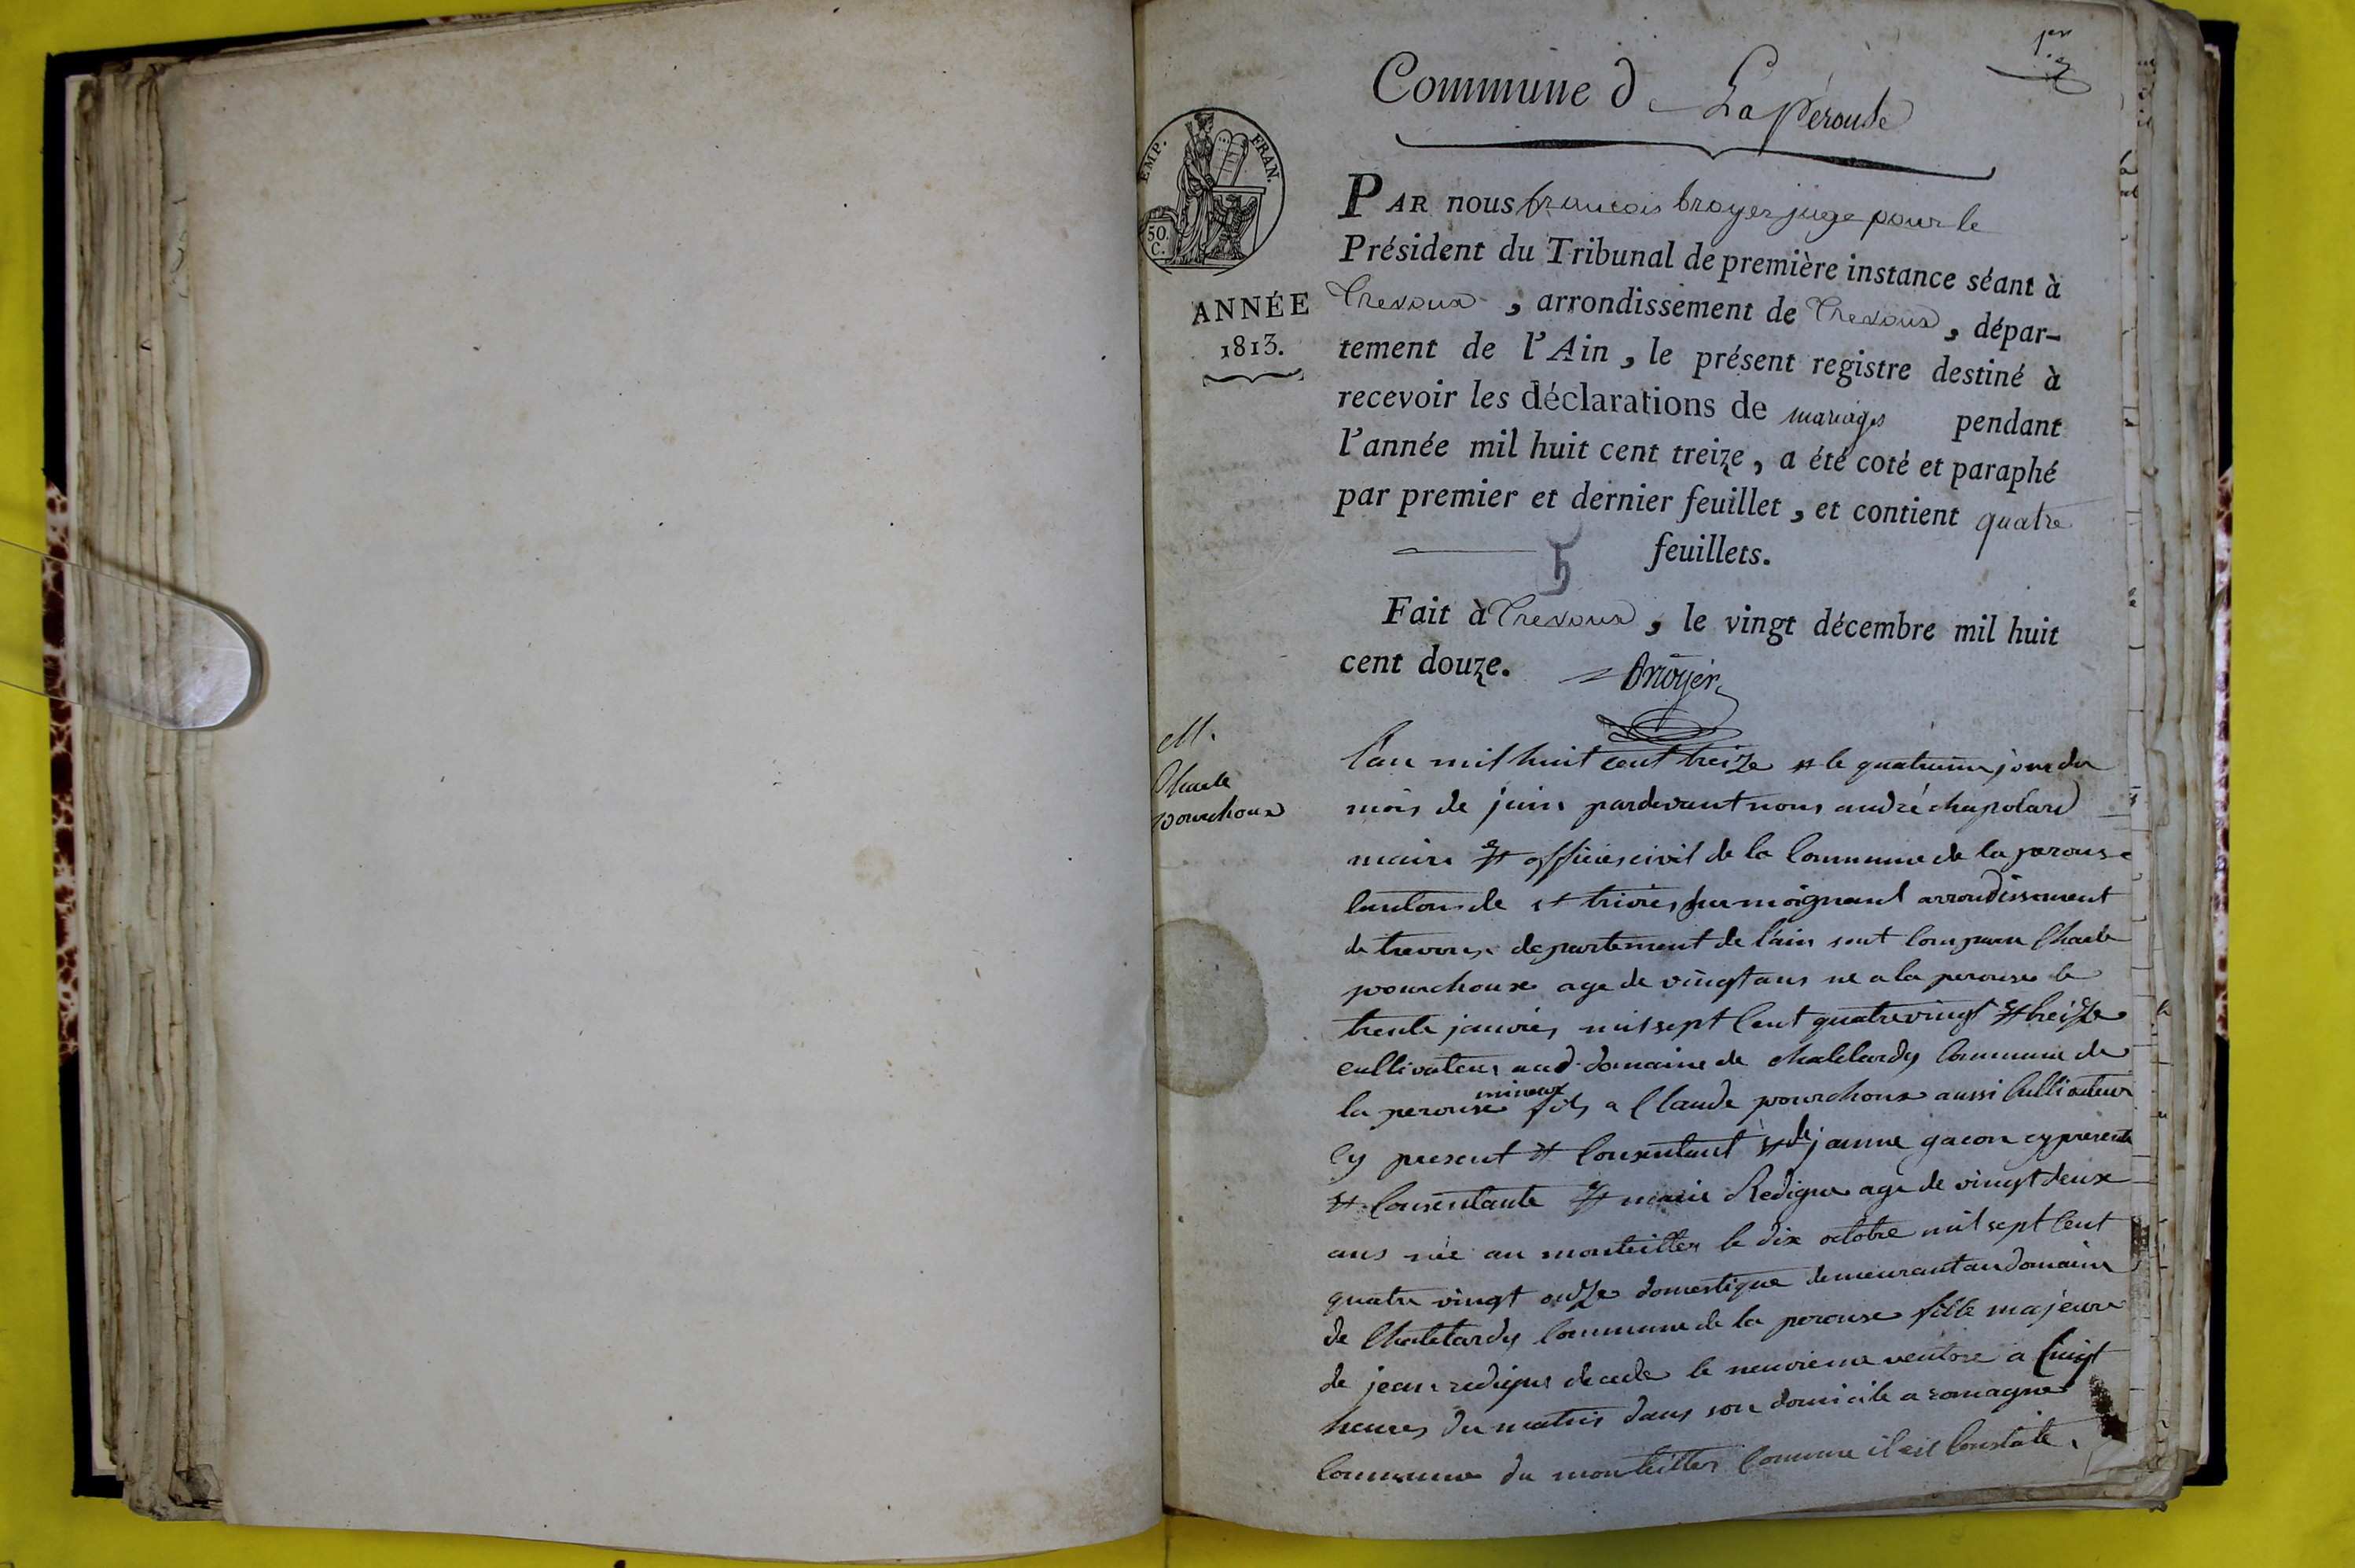 1er
Commune de La Pérouse
EMP. FRAN.
50.
C.
ANNÉE
1813.
PAR nous francois broyer juge pour le
Président du Tribunal de première instance séant à
Trevoux, arrondissement de Trevoux, dépar-
tement de l'Ain, le présent registre destiné à
recevoir les déclarations de mariages pendant
l'année mil huit cent treize, a été coté et paraphé
par premier et dernier feuillet, et contient quatre
feuillets.
5
Fait à Trevoux, le vingt décembre mil huit
cent douze.
Broyer
M.
Claude
pourchoux
L'an mil huit cent treize et le quatrieme jour du
mois de juin pardevant nous andré chapolard
maire et officier civil de la Commune de la perouse
Canton de st trivier sur moignand arrondissement
de trevoux departement de l'ain sont Comparu Claude
pourchoux age de vingt ans ne a la perouse le
trente janvier mil sept Cent quatre vingt et treize
cultivateur aud domaine de Commune de
la perouse mineur fils a Claude pourchoux aussi Cultivateur
Cy present et Consentant et de jeanne gacon cy presente
et Consentante et marie Redigue agé de vingt deux
ans née au monteillier le dix octobre mil sept Cent
quatre vingt onze domestique demeurant au domaine
de Commune de la perouse fille majeure
de jean decede le neuvieme ventose a
heures du matin dans son domicile a romagne
Commune du monteillier Comme il est Constaté